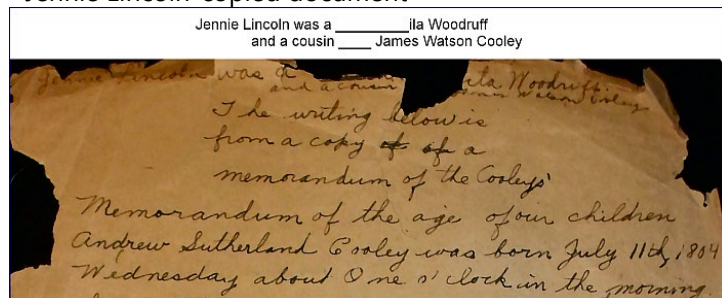 Jennie Lincoln copied document
Jennie Lincoln was a __________ila Woodruff
and a cousin ____ James Watson Cooley
Jennie Lincoln was a ila Woodruff
and a cousin James Watson Cooley
The writing below is
from a copy of of a
memorandum of the Cooleys'
Memorandum of the age of our children
Andrew Sutherland Cooley was born July 11th, 1804
Wednesday about One o'clock in the morning.